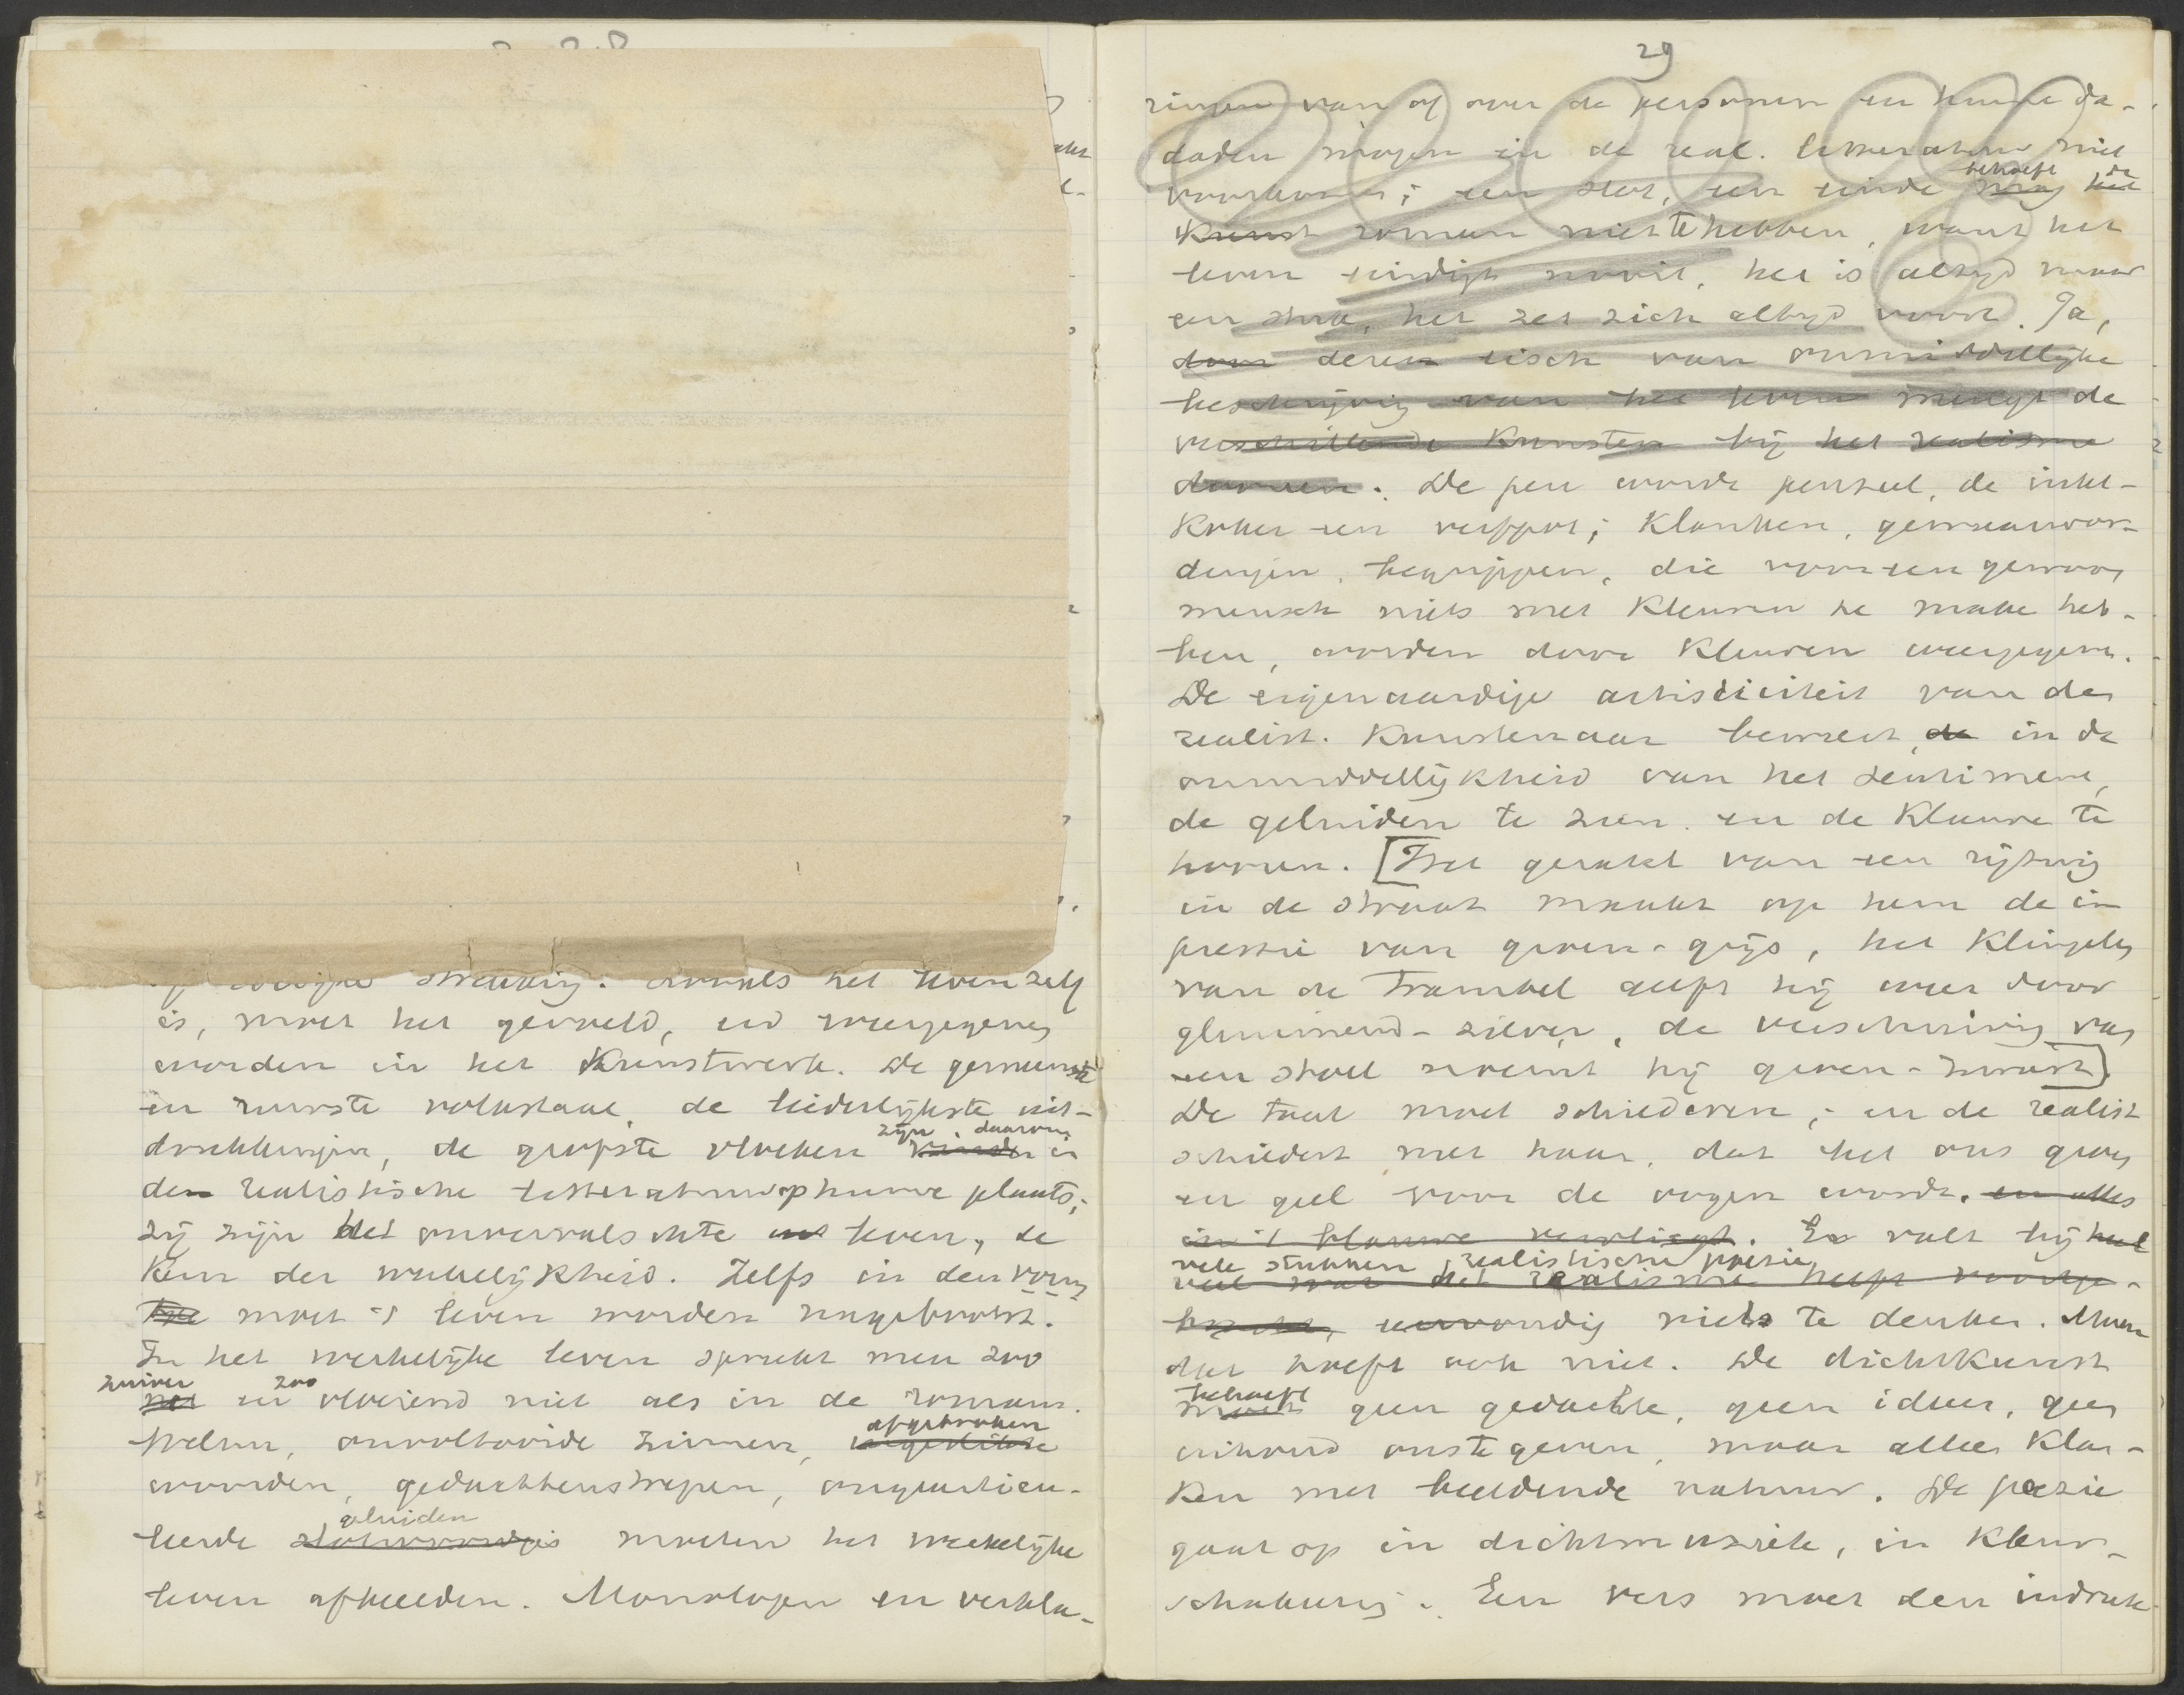 straving. Evenals het leven zelf
is, moet het gevoeld, en weergegeven
worden in het Kunstwerk. De gemeenste
en ruwste volkstaal, de liederlijkste uit-
zijn daarom
drukkingen, de grofste vloeken in
den realistische litteratuur op hunne plaats;
zij zijn het onvervalschte leven, de
Kern der werkelijkheid. Zelfs in den vorm
moet 't leven worden nagebootst.
In het werkelijke leven spreekt men zoo
zuiver zoo
net en vloeiend niet als in de romans.
afgebroken
Welnu, onvoltooide zinnen,
woorden, gedachtenstrepen, ongearticu-
geluiden
leerde moeten het werkelijke
leven afbeelden. Monologen en verkla-
29
ringen van of over de personen en hunne da-
daden mogen in de real. litteratuur niet
behoeft de
voorkomen; een slot, een einde mag het
Kunst roman niet te hebben, want het
leven eindigt nooit, het is altijd maar
een stuk, het zet zich altijd voort. Ja,
door dezen eisch van onmiddellijke
beschrijving van het leven mengt de
verschillende Kunsten bij het realisme
dooreen. De pen wordt penseel, de inkt-
Koker een verfpot; Klanken, gewaarwor-
dingen, begrippen, die voor een gewoon
mensch niets met Kleuren te make heb-
ben, worden door Kleuren weergegeven.
De eigenaardige artisticiteit van den
realist. Kunstenaar beweert, de in de
onmiddellijkheid van het sentiment,
de geluiden te zien en de Kleuren te
hooren. [Het geratel van een rijtuig
in de straat maakt op hem de im
pressie van geren-grijs, het Klingelen
van de Trambel geeft hij weer door
glimmend-zilver, de verschuiving van
een stoel noemt hij geren-zwart]
De taal moet schilderen; en de realist
schildert met haar, dat het ons groen
en geel voor de oogen wordt. en alles
in 't blauwe vervliegt. Er valt bij heel
vele stukken realistische poesie
veel wat het realisme heeft voortge-
bracht, eenvoudig niets te denken. Maar
dat hoeft ook niet. De dichtkunst
behoeft
moet geen gedachte, geen ideeen, geen
inhoud ons te geven, maar alleen Klan-
Ken met beeldende natuur. De poezie
gaat op in dichtmuziek, in Kleur-
schakering. Een vers moet den indruk